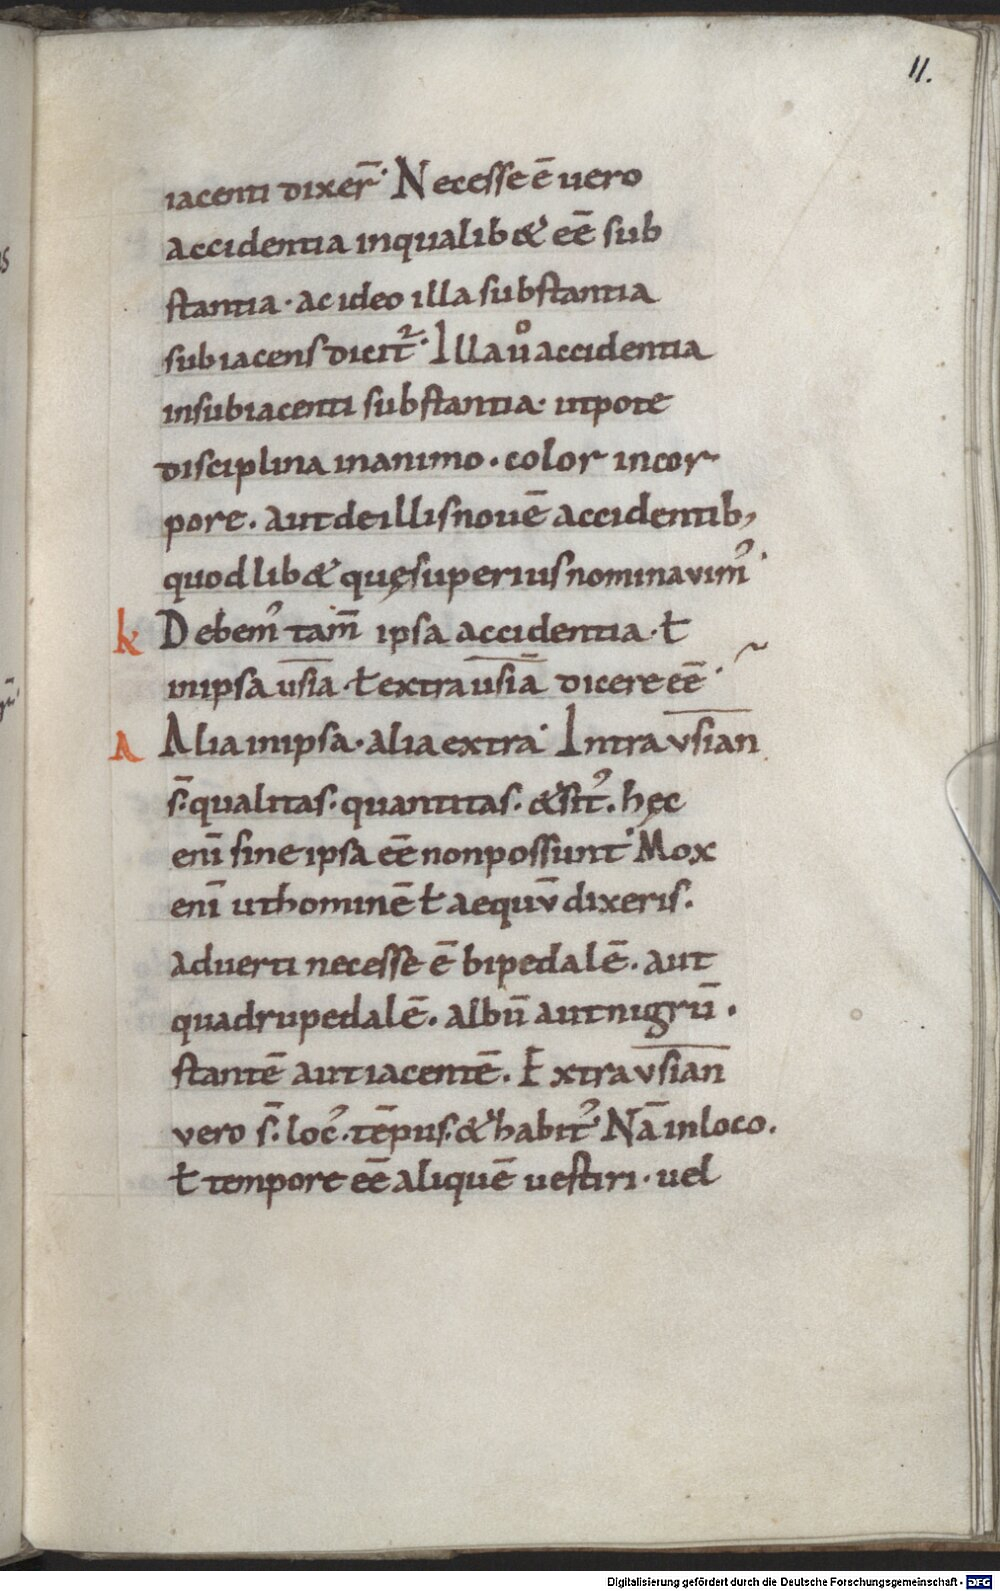 11.
iacenti dixer̄· Necesse ē uero
accidentia inqualib& eē̄ sub
stantia · ac ideo illa substantia
subiacens dicit᷑· Illa uͦ accidentia
insubiacenti substantia· utpote
disciplina inanimo · color incor
pore . aut de illis nouē accidentib,
quodlib& quę superius nominauim᾽·
k Debem᾽ tam̄ ipsa accidentia · ł
inipsa usīa · ł extra usīā dicere eē̄·
A Alia inipsa · alia extra· Intra usīan
s̄· qualitas· quantitas· & sit᾽· hęc
enī sine ipsa eē̄ nonpossunt· Mox
enī ut hominē ł aequū dixeris .
aduerti necesse ē bipedalē . aut
quadrupedalē . albū aut nigrū .
stantē aut iacentē . Extra usīan
uero s̄· loc᾽· tēpus· & habit᾽· Nā inloco .
ł tempore eē̄ aliquē uestiri · uel
Digitalisierung gefördert durch die Deutsche Forschungsgemeinschaft - DFG